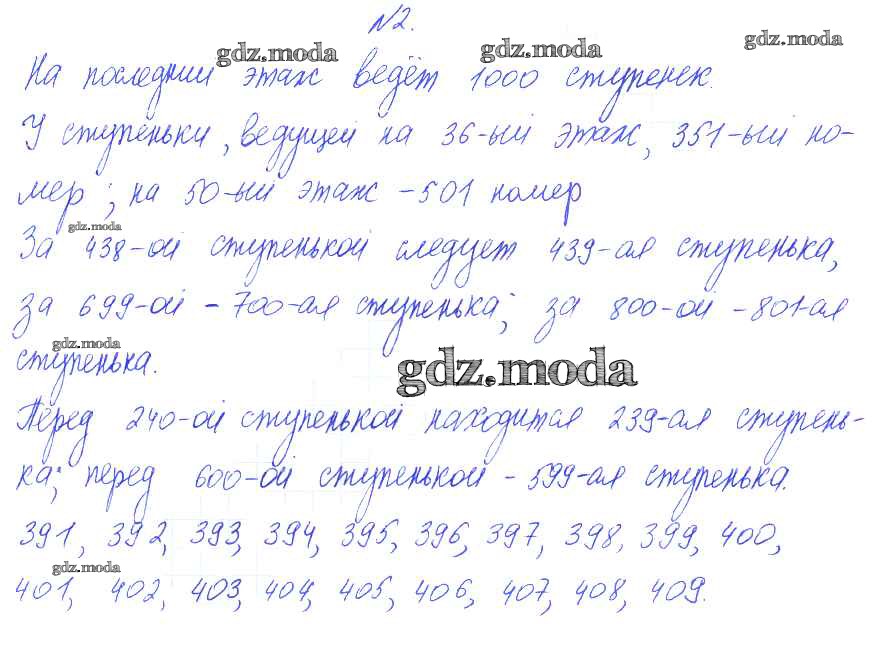 №2.
gdz.moda gdz.moda gdz.moda
На последний этаж ведёт 1000 ступенек.
У ступеньки, ведущей на 36-ый этаж, 351-ый но-
мер; на 50-ый этаж - 501 номер
gdz.moda
За 438-ой ступенькой следует 439-ая ступенька,
за 699-ой - 700-ая ступенька; за 800-ой - 801-ая
gdz.moda
ступенька.
gdz.moda
Перед 240-ой ступенькой находится 239-ая ступень-
ка; перед 600-ой ступенькой - 599-ая ступенька.
391, 392, 393, 394, 395, 396, 397, 398, 399, 400,
gdz.moda
401, 402, 403, 404, 405, 406, 407, 408, 409.